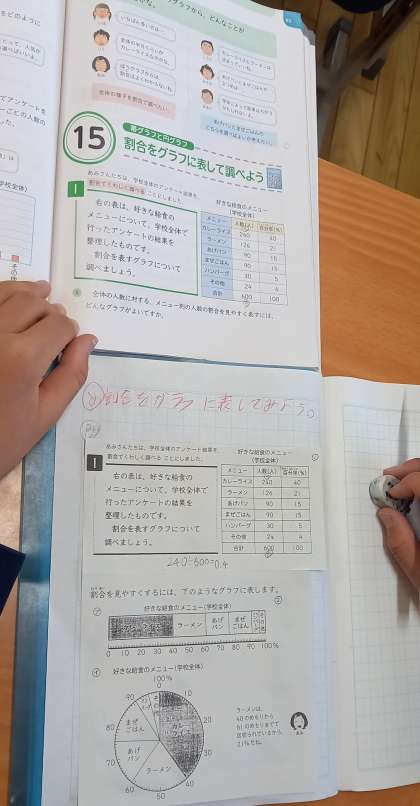 いちばん多いのは、
グラフから、どんなことが
全体の様子を割合で調べたい。
15
帯グラフと円グラフ
割合をグラフに表して調べよう
あみさんたちは、学校全体のアンケート結果を、
割合でくわしく調べることにしました。
1
右の表は、好きな給食の
メニューについて、学校全体で
行ったアンケートの結果を
整理したものです。
割合を表すグラフについて
調べましょう。
好きな給食のメニュー
(学校全体)
メニュー 人数(人) 百分率(%)
カレーライス 240 40
ラーメン 126 21
あげパン 90 15
まぜごはん 90 15
ハンバーグ 30 5
その他 24 4
合計 600 100
全体の人数に対する、メニュー別の人数の割合を見やすく表すには、
どんなグラフがよいですか。
割合をグラフに表してみよう。
あみさんたちは、学校全体のアンケート結果を、
割合でくわしく調べることにしました。
1
右の表は、好きな給食の
メニューについて、学校全体で
行ったアンケートの結果を
整理したものです。
割合を表すグラフについて
調べましょう。
好きな給食のメニュー
(学校全体)
メニュー 人数(人) 百分率(%)
カレーライス 240 40
ラーメン 126 21
あげパン 90 15
まぜごはん 90 15
ハンバーグ 30 5
その他 24 4
合計 600 100
240÷600=0.4
割合を見やすくするには、下のようなグラフに表します。
ア 好きな給食のメニュー(学校全体)
ラーメン あげパン まぜごはん
0 10 20 30 40 50 60 70 80 90 100%
イ 好きな給食のメニュー(学校全体)
100%
0
90 10
80 20
70 30
60 40
50
まぜごはん
あげパン
ラーメン
ラーメンは、
40のめもりから
61のめもりまでで
区切られているから、
21%だね。
あみ